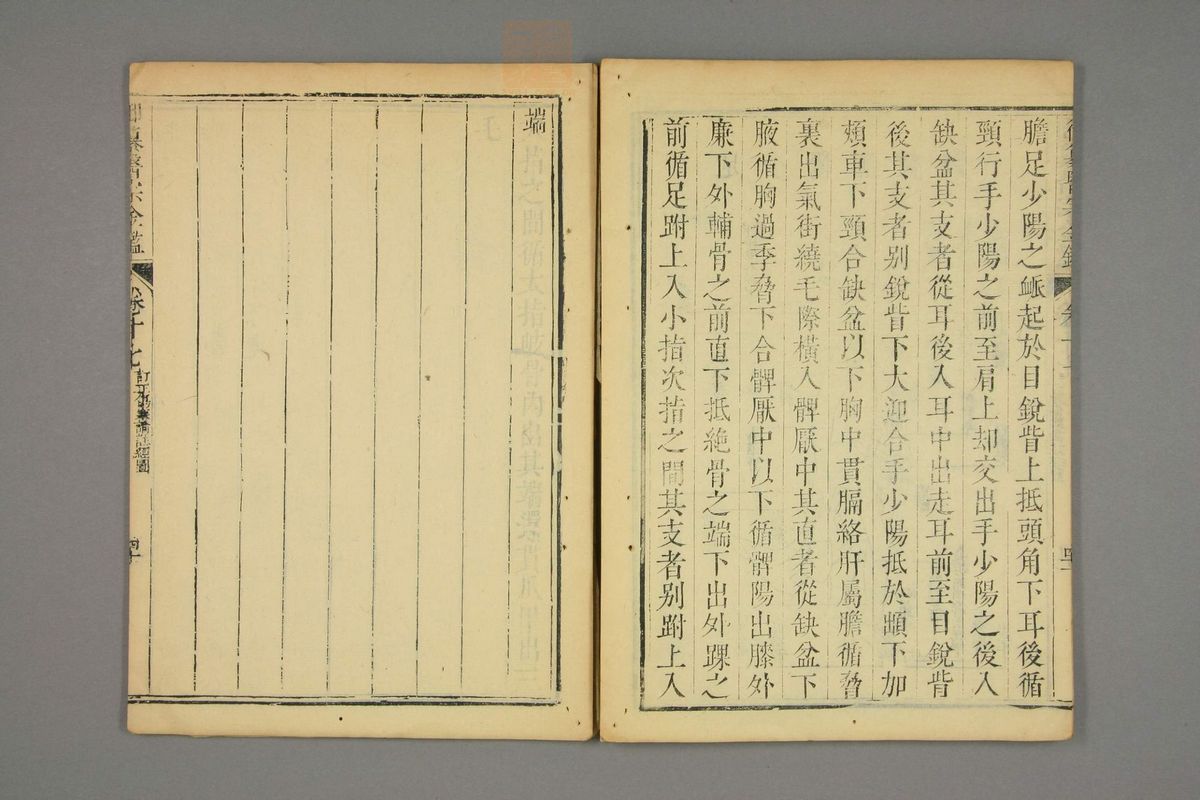 膽足少陽之衇起於目銳眥上抵頭角下耳後循
頸行手少陽之前至肩上却交出手少陽之後入
缺盆其支者從耳後入耳中出走耳前至目銳眥
後其支者别銳眥下大迎合手少陽抵於䪼下加
頰車下頸合缺盆以下胸中貫膈絡肝屬膽循脅
裏出氣街繞毛際橫入髀厭中其直者從缺盆下
腋循胸過季脅下合髀厭中以下循髀陽出膝外
廉下外輔骨之前直下抵絶骨之端下出外踝之
前循足跗上入小指次指之間其支者别跗上入
端
醫宗金鑑
卷十七